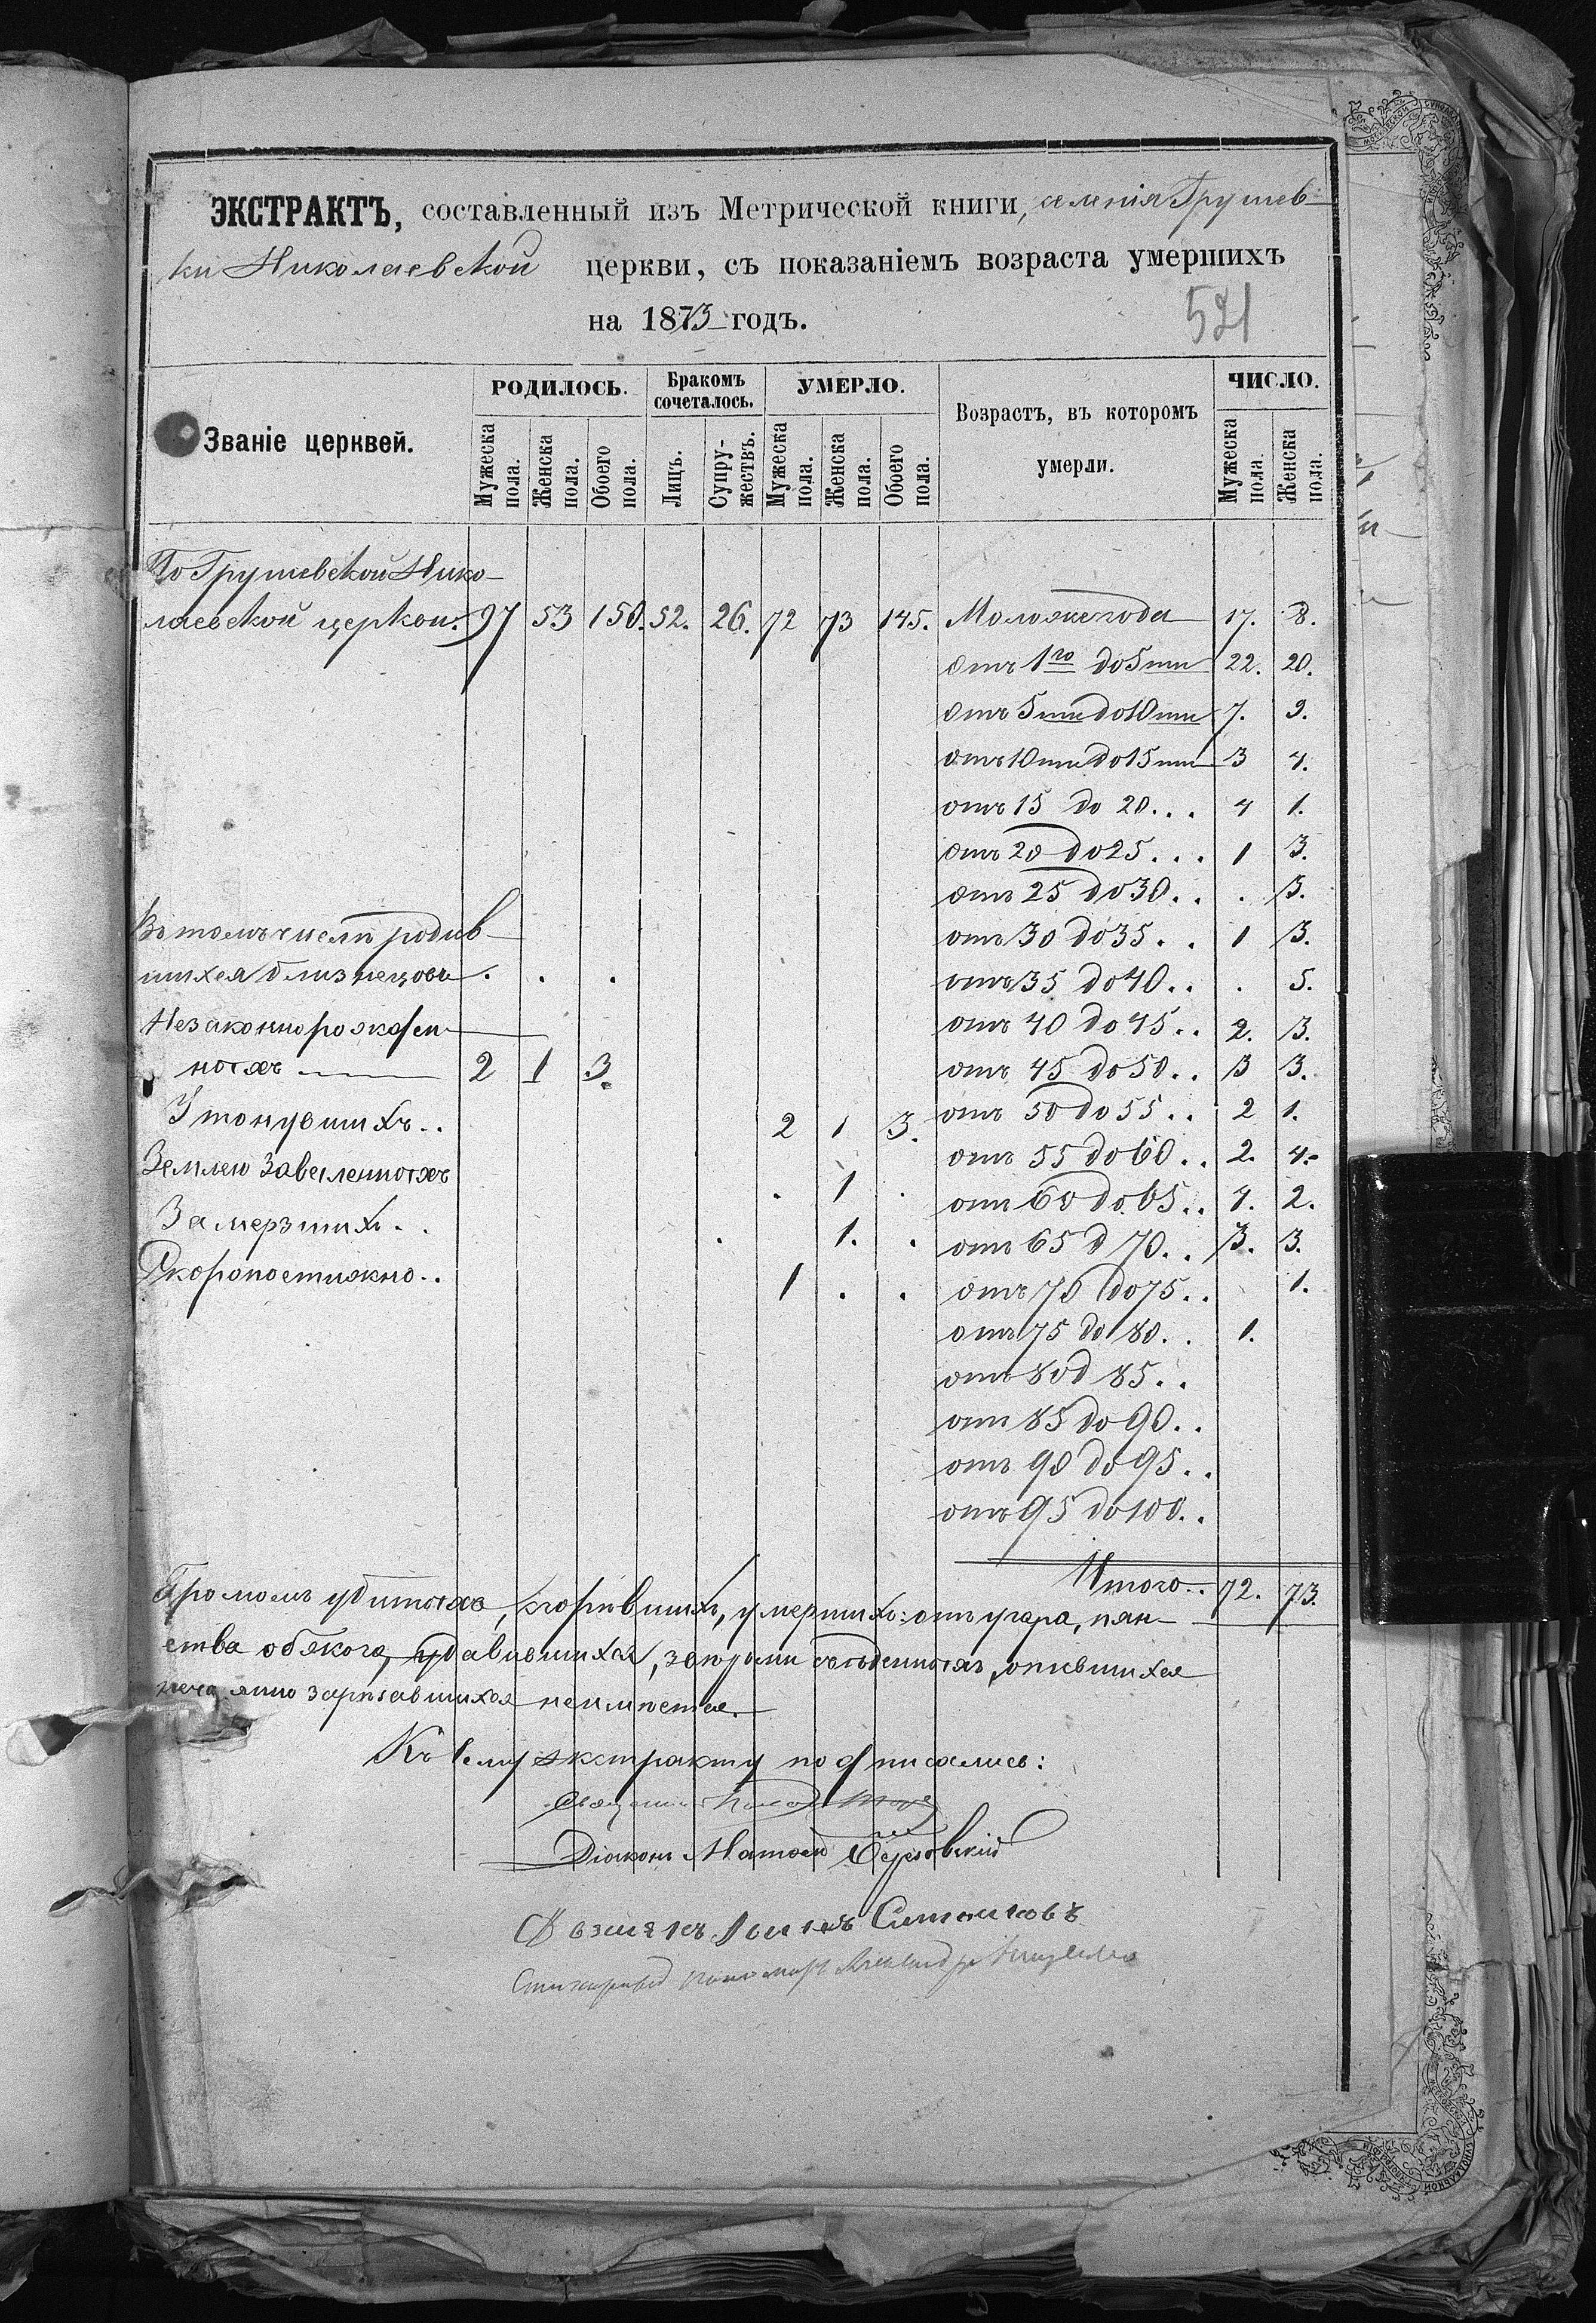 ЭКСТРАКТЪ, составленный изъ Метрической книги, селенія Грушев-
ки Николаевской церкви, съ показаніемъ возраста умершихъ
на 1873 годъ.
521
Званіе церквей.
РОДИЛОСЬ.
Бракомъ сочеталось.
УМЕРЛО.
Возрастъ, въ которомъ умерли.
ЧИСЛО.
Мужеска пола.
Женска пола.
Обоего пола.
Лицъ.
Супружествъ.
Мужеска пола.
Женска пола.
Обоего пола.
Мужеска пола.
Женска пола.
По Грушевской Нико-
лаевской церкви. 97 53 150. 52. 26. 72 73 145. Моложе года 17. 8.
отъ 1го до 5ти 22. 20.
отъ 5ти до 10ти 7. 9.
отъ 10ти до 15ти 3 4.
отъ 15 до 20... 4 1.
отъ 20 до 25... 1 3.
отъ 25 до 30.. . 3.
Въ томъ числѣ родив- отъ 30 до 35.. 1 3.
шихся близнецовъ . . . отъ 35 до 40.. . 5.
Незаконнорожден- отъ 40 до 45.. 2. 3.
ныхъ 2 1 3. отъ 45 до 50.. 3 3.
Утонувшихъ.. 2 1 3. отъ 50 до 55.. 2 1.
Землею заваленныхъ . 1 . отъ 55 до 60.. 2. 4.
Замерзшихъ.. . 1. . отъ 60 до 65.. 4. 2.
Скоропостижно.. 1 . . отъ 65 д 70.. 3. 3.
отъ 70 до 75.. 1.
отъ 75 до 80.. 1.
отъ 80 д 85..
отъ 85 до 90..
отъ 90 до 95..
отъ 95 до 100..
Итого.. 72. 73.
Громомъ убитыхъ, сгорѣвшихъ, умершихъ: отъ угара, пян-
ства обжога, удавившихся, звѣрьми съѣденныхъ, опившихся
нечаянно зарѣзавшихся неимѣется.
Къ сему экстракту подписались:
Священникъ
Діаконъ Матѳей